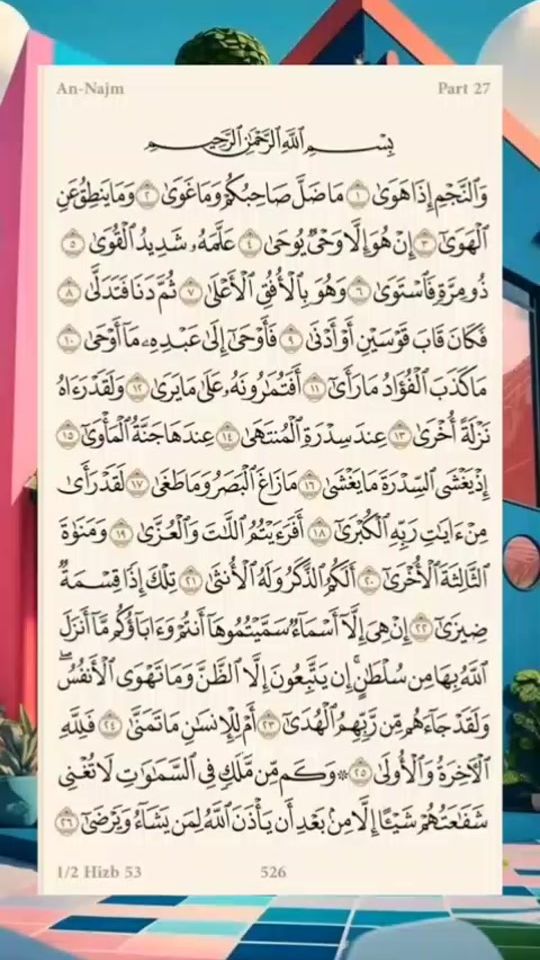 An-Najm Part 27
بِسْمِ ٱللَّهِ ٱلرَّحْمَٰنِ ٱلرَّحِيمِ
وَٱلنَّجْمِ إِذَا هَوَىٰ ١ مَا ضَلَّ صَاحِبُكُمْ وَمَا غَوَىٰ ٢ وَمَا يَنطِقُ عَنِ
ٱلْهَوَىٰٓ ٣ إِنْ هُوَ إِلَّا وَحْىٌ يُوحَىٰ ٤ عَلَّمَهُۥ شَدِيدُ ٱلْقُوَىٰ ٥
ذُو مِرَّةٍ فَٱسْتَوَىٰ ٦ وَهُوَ بِٱلْأُفُقِ ٱلْأَعْلَىٰ ٧ ثُمَّ دَنَا فَتَدَلَّىٰ ٨
فَكَانَ قَابَ قَوْسَيْنِ أَوْ أَدْنَىٰ ٩ فَأَوْحَىٰٓ إِلَىٰ عَبْدِهِۦ مَآ أَوْحَىٰ ١٠
مَا كَذَبَ ٱلْفُؤَادُ مَا رَأَىٰٓ ١١ أَفَتُمَٰرُونَهُۥ عَلَىٰ مَا يَرَىٰ ١٢ وَلَقَدْ رَءَاهُ
نَزْلَةً أُخْرَىٰ ١٣ عِندَ سِدْرَةِ ٱلْمُنتَهَىٰ ١٤ عِندَهَا جَنَّةُ ٱلْمَأْوَىٰٓ ١٥
إِذْ يَغْشَى ٱلسِّدْرَةَ مَا يَغْشَىٰ ١٦ مَا زَاغَ ٱلْبَصَرُ وَمَا طَغَىٰ ١٧ لَقَدْ رَأَىٰ
مِنْ ءَايَٰتِ رَبِّهِ ٱلْكُبْرَىٰٓ ١٨ أَفَرَءَيْتُمُ ٱللَّٰتَ وَٱلْعُزَّىٰ ١٩ وَمَنَوٰةَ
ٱلثَّالِثَةَ ٱلْأُخْرَىٰٓ ٢٠ أَلَكُمُ ٱلذَّكَرُ وَلَهُ ٱلْأُنثَىٰ ٢١ تِلْكَ إِذًا قِسْمَةٌ
ضِيزَىٰٓ ٢٢ إِنْ هِىَ إِلَّآ أَسْمَآءٌ سَمَّيْتُمُوهَآ أَنتُمْ وَءَابَآؤُكُم مَّآ أَنزَلَ
ٱللَّهُ بِهَا مِن سُلْطَٰنٍ ۚ إِن يَتَّبِعُونَ إِلَّا ٱلظَّنَّ وَمَا تَهْوَى ٱلْأَنفُسُ ۖ
وَلَقَدْ جَآءَهُم مِّن رَّبِّهِمُ ٱلْهُدَىٰٓ ٢٣ أَمْ لِلْإِنسَٰنِ مَا تَمَنَّىٰ ٢٤ فَلِلَّهِ
ٱلْءَاخِرَةُ وَٱلْأُولَىٰ ٢٥ ۞ وَكَم مِّن مَّلَكٍ فِى ٱلسَّمَٰوَٰتِ لَا تُغْنِى
شَفَٰعَتُهُمْ شَيْـًٔا إِلَّا مِنۢ بَعْدِ أَن يَأْذَنَ ٱللَّهُ لِمَن يَشَآءُ وَيَرْضَىٰٓ ٢٦
1/2 Hizb 53 526